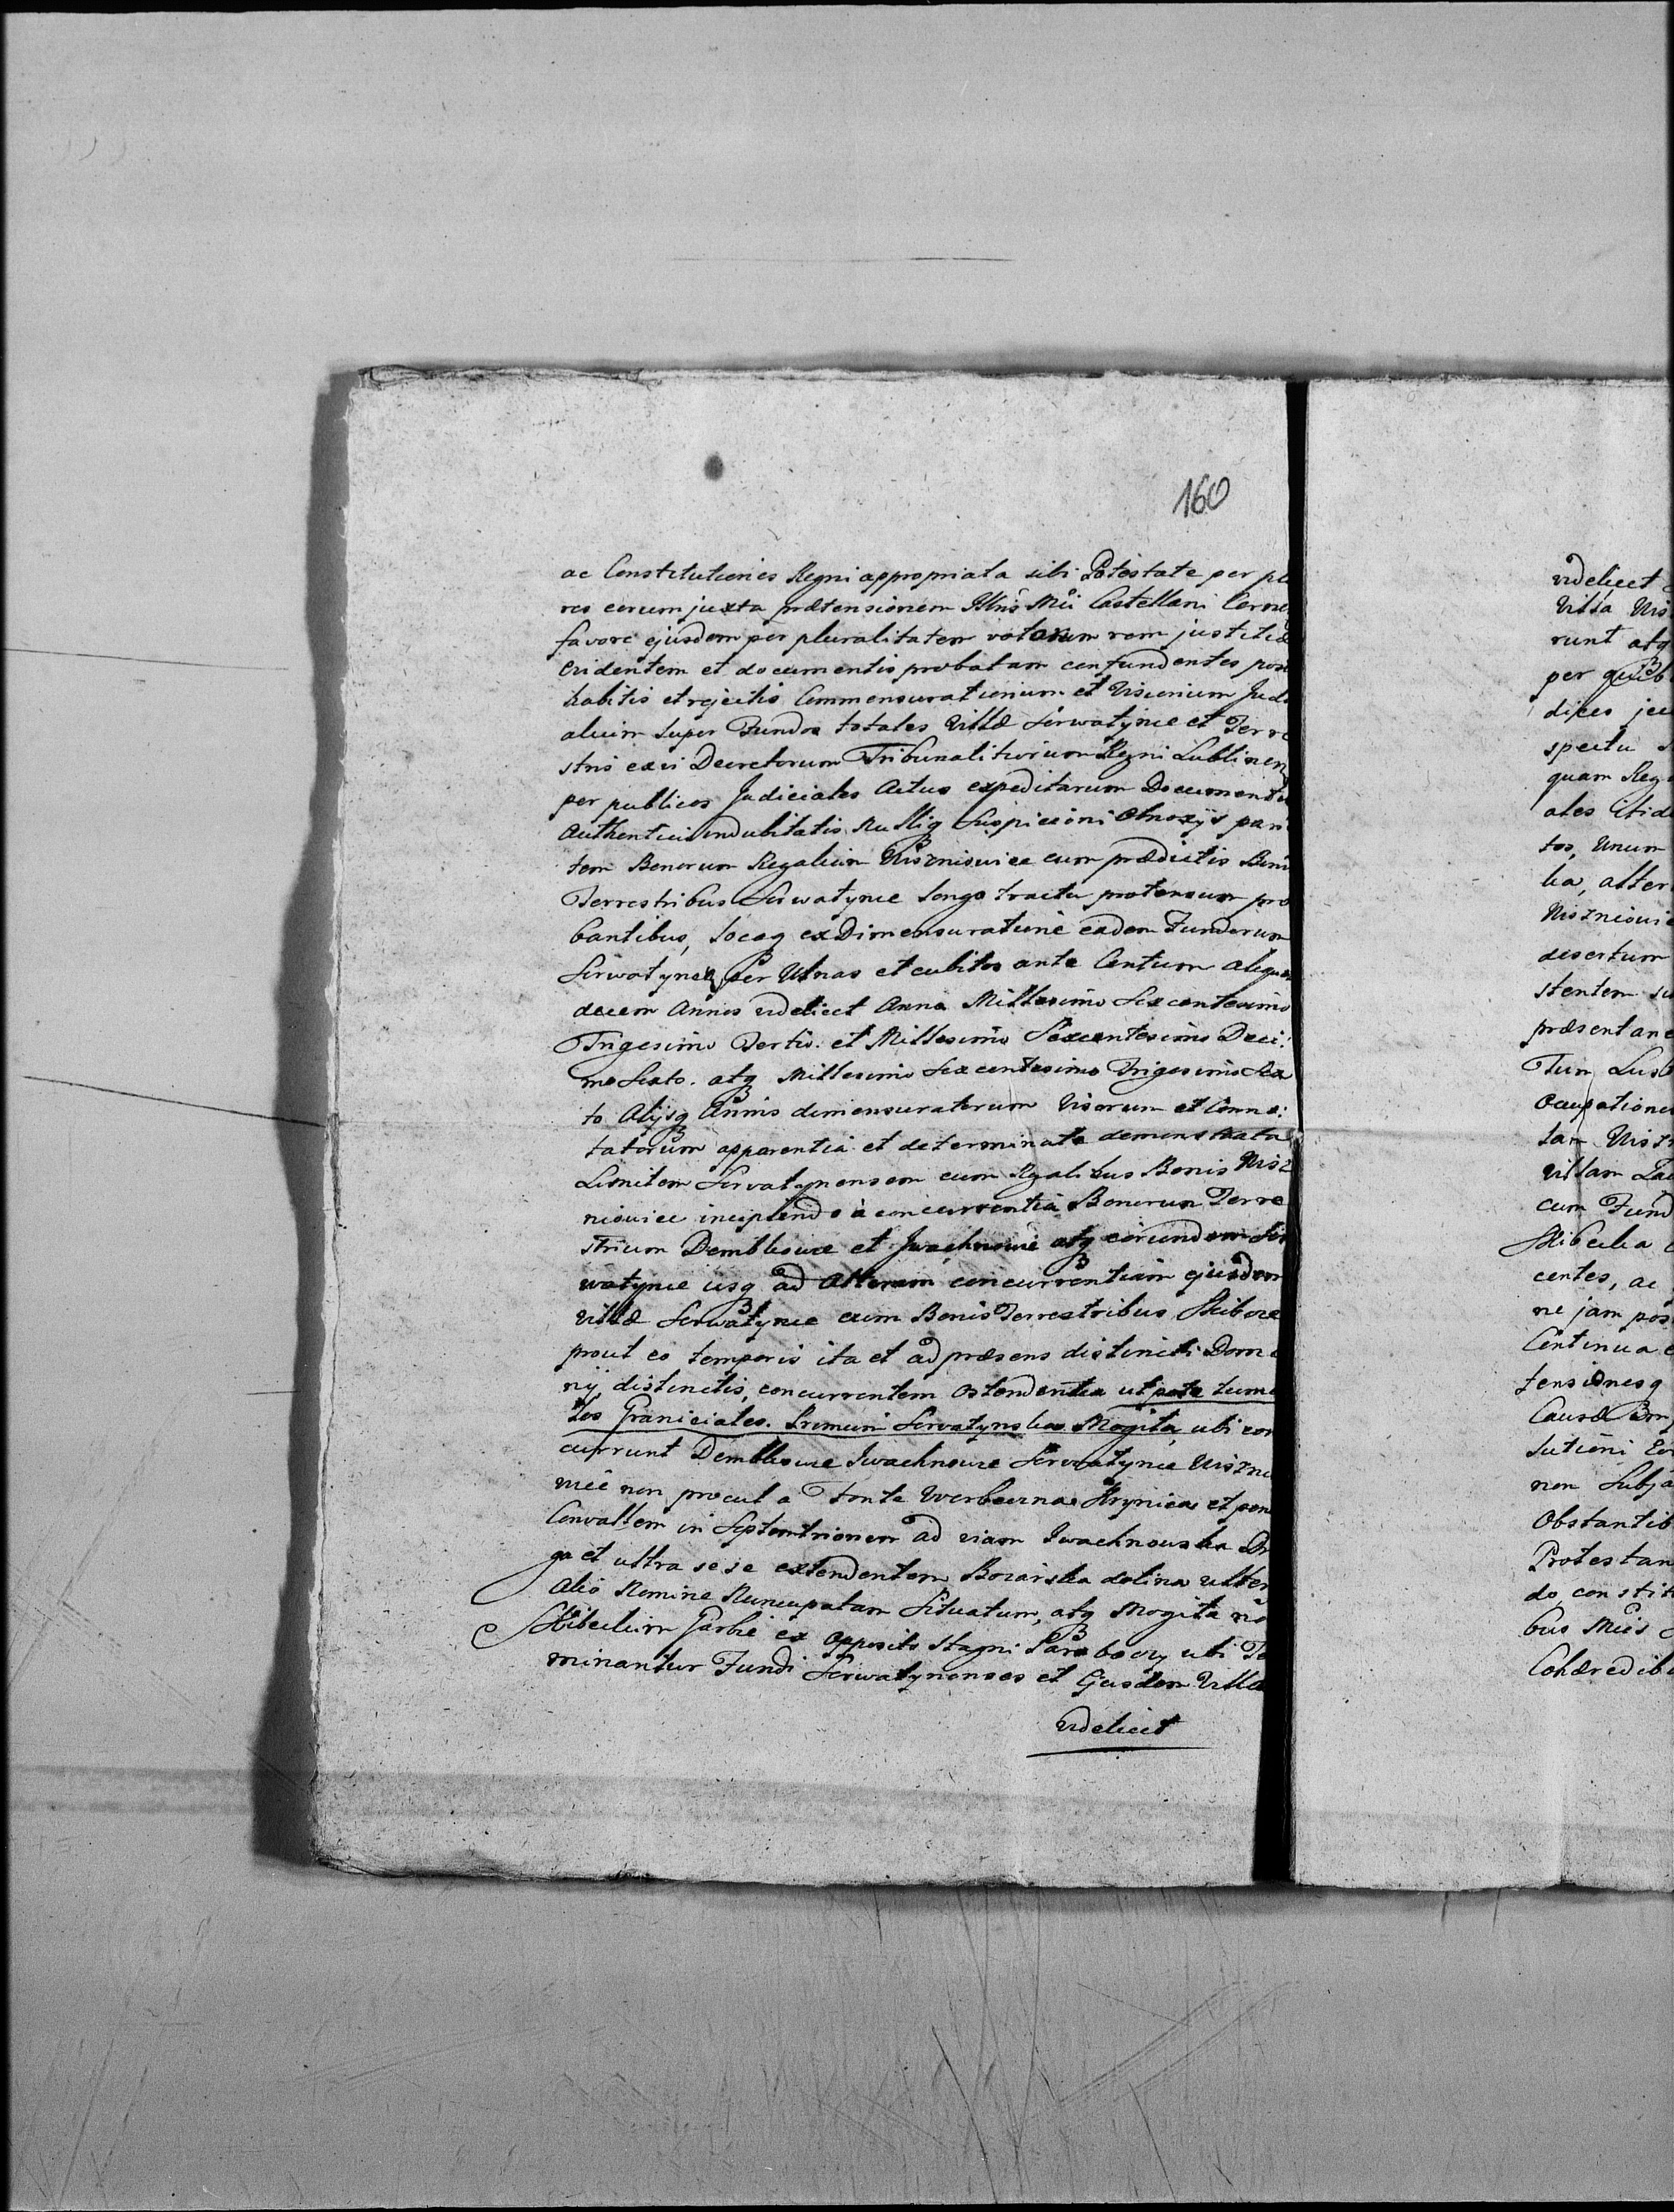 160
ac Constitutiones Regni appropriata sibi Potestate per plu
res eorum juxta prætensionem Illris Mci Castellani
favore ejusdem per pluralitatem votorum rem justitiæ
evidentem et documentis probatam confundentes post
habitis et rejectis Commensurationum et Visionum Judi
alium super Fundos totales Villæ Serwatynce et Terre
stris ex vi Decretorum Tribunalitiorum Regni Lublinen
per publicos Judiciales Actus expeditarum Documentis
Authenticis indubitatis Nulliq Suspicioni Obnoxijs pari
tem Bonorum Regalium Niszniowice cum prædictis Boni
Terrestribus Serwatynce longo tractu protensum pro
bantibus, locaq ex Dimensuratione eadem Fundorum
Serwatynce per Ulnas et cubitos ante Centum aliquot
decem Annos videlicet Anno Millesimo Sexcentesimo
Trigesimo Tertio. et Millesimo Sexcentesimo Deci:
mo Sexto. atq Millesimo Sexcentesimo Trigesimo Sex
to Alijsq Annis dimensuratorum Visorum et Conno:
tatorum apparentia et determinata demonstrata
Limitem Servatynensem cum Regalibus Bonis Nisz
niowice incipiendo à concurrentia Bonorum Terre
strium Dembkowce et Jwachnowce atq eorundem Ser
watynce usq ad Alteram concurrentiam ejusdem
Villæ Serwatynce cum Bonis Terrestribus Skibowce
prout eo temporis ita et ad præsens distincti Domi
nij, distinctis, concurrentem Ostendentia utpote tumu
los Graniciales. Primum Servatynska Mogiła, ubi con
currunt Dembkowce Iwachnowce Serwatynce Niszni
wice non procul a fonte Werbowna Krynica et pone
Convallem in Septemtrionem ad viam Iwachnowska Dro
ga et ultra sese extendentem Bozarska dolina
Alio Nomine Nuncupatam Situatum, atq Mogiła
Skibeckim Garbie ex opposito Stagni ubi Te
minantur Fundi Serwatynenses et Ejusdem Villa
videlicet
videlicet
Villa Nis
runt atq
per
dices
spectu
quam Reg
ales
tos, Unum
ka, alter
Niszniowi
desertum
stentem
præsentan
Tum
Occupatione
tam Nisz
villam
cum Fund
Skibecka
centes, ac
ne jam pos
Continua
tensionesq
Causæ
lutioni
non Subja
Obstantib
Protestan
do, constit
bus
Cohæredib